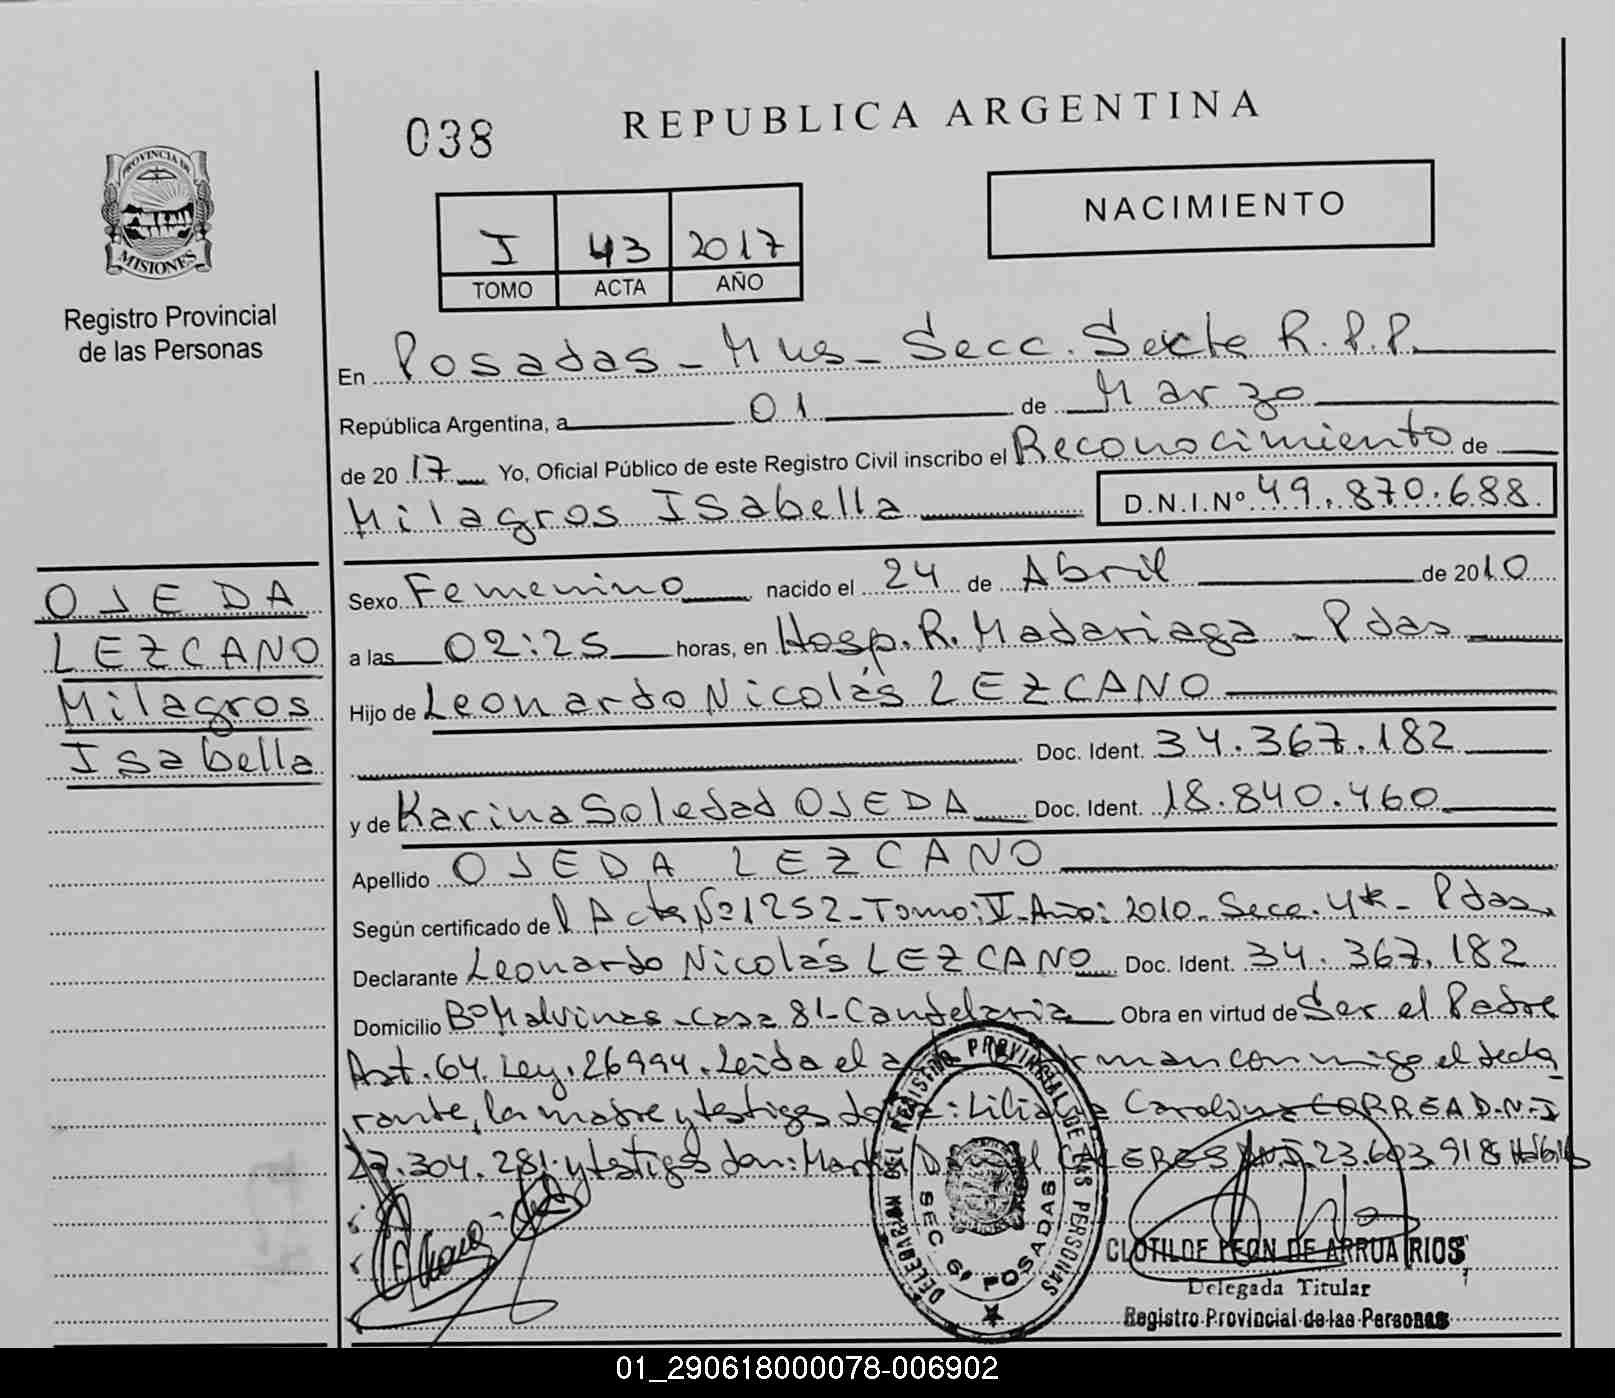 038
REPUBLICA ARGENTINA
PROVINCIA DE
MISIONES
Registro Provincial
de las Personas
I 43 2017
TOMO ACTA AÑO
NACIMIENTO
En Posadas - Mnes - Secc. Sexta R.P.P.
República Argentina, a 01 de Marzo
de 2017 Yo, Oficial Público de este Registro Civil inscribo el Reconocimiento de
Milagros Isabella D.N.I.Nº 49.870.688.
OJEDA
LEZCANO
Milagros
Isabella
Sexo Femenino nacido el 24 de Abril de 2010
a las 02:25 horas, en Hosp. R. Madariaga - Pdas
Hijo de Leonardo Nicolás LEZCANO
Doc. Ident. 34.367.182
y de Karina Soledad OJEDA Doc. Ident. 18.840.460
Apellido OJEDA LEZCANO
Según certificado de Acta Nº 1252 - Tomo: V - Año: 2010 - Secc. 4ta - Pdas.
Declarante Leonardo Nicolás LEZCANO Doc. Ident. 34.367.182
Domicilio Bº Malvinas - Casa 81 - Candelaria Obra en virtud de Ser el Padre
Art. 64. Ley. 26994. Leida el conmigo el decla
rante, la madre y testigos Carolina CORREA D.N.I
27.304.281 y testigo don: 23.603.918 Hábiles
DELEGACION DEL REGISTRO PROVINCIAL DE LAS PERSONAS
SEC. 6ª POSADAS
CLOTILDE LEON DE ARRUA RIOS
Delegada Titular
Registro Provincial de las Personas
01_290618000078-006902